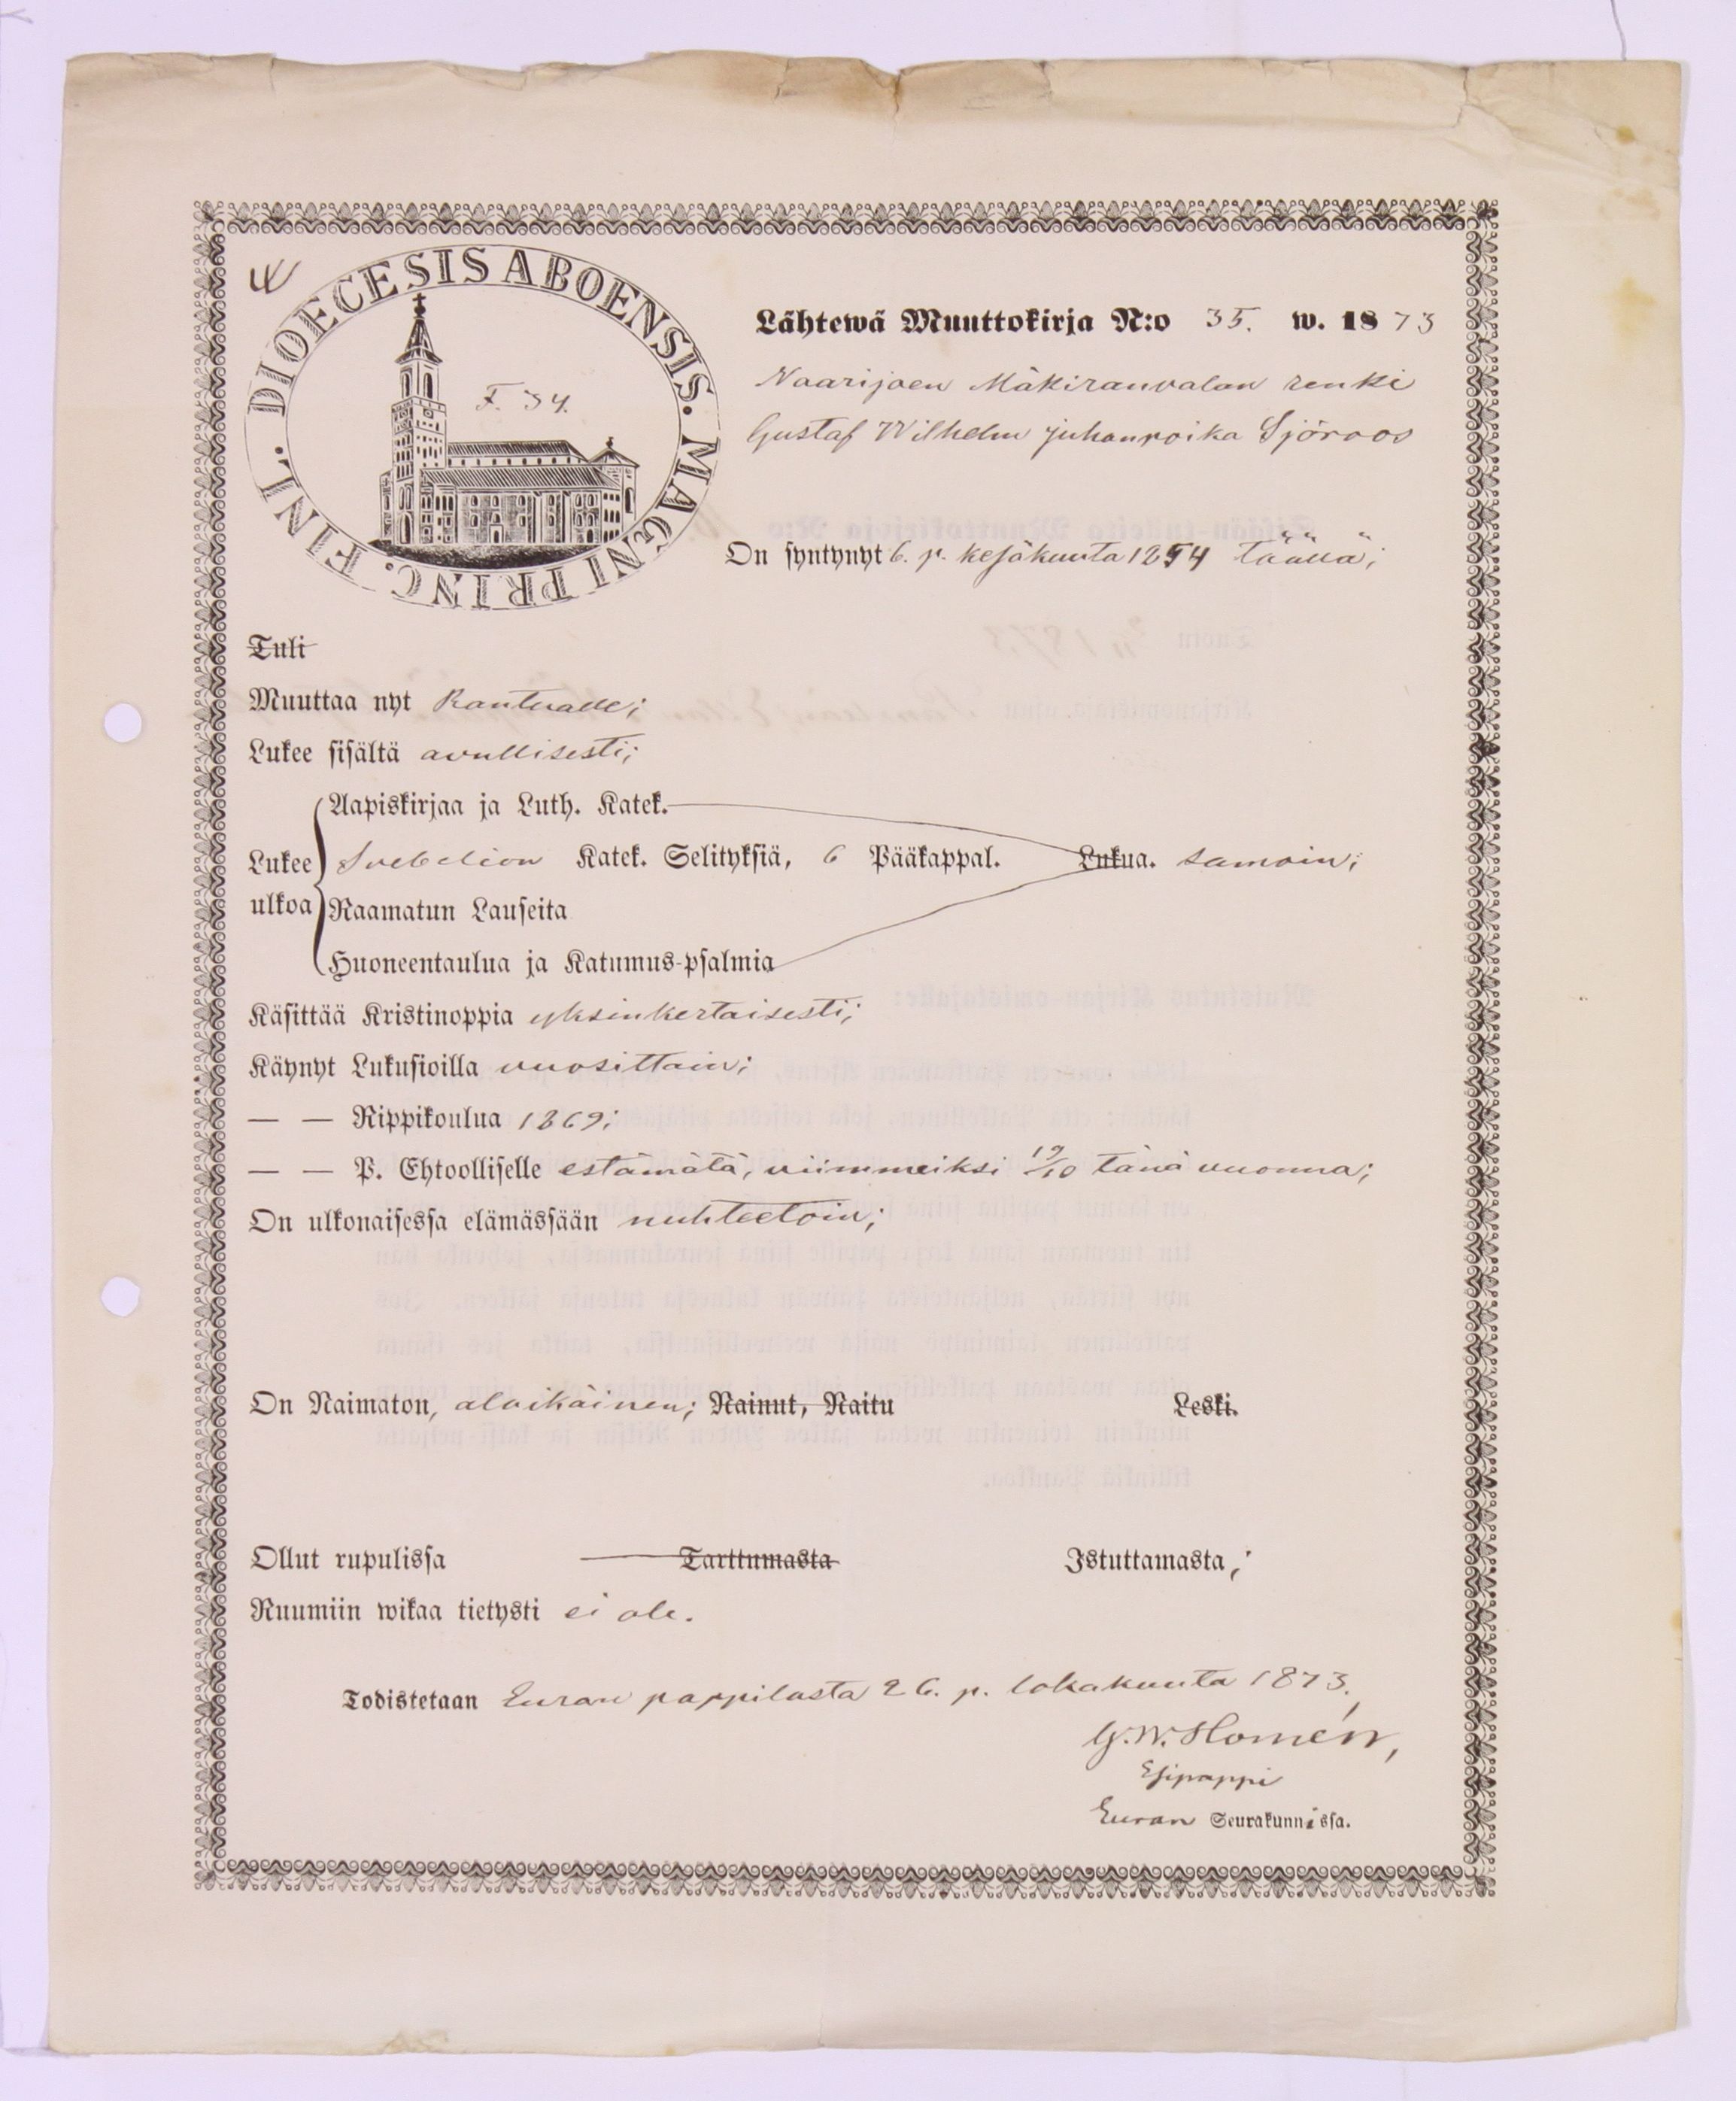 DIOECESIS ABOENSIS. MAGNI PRINC. FINL.
F. 34.
Lähtewä Muuttokirja N:o 35. w. 1873
Naarijoen Mäkirauvalan renki
Gustaf Wilhelm Juhanpoika Sjöroos
On syntynyt 6. p. kesäkuuta 1854 täällä;
Tuli
Muuttaa nyt Rantualle;
Lukee sisältä avullisesti;
Aapiskirjaa ja Luth. Katek.
Lukee Svebelion Katek. Selityksiä, 6 Pääkappal. Lukua. samoin;
ulkoa Raamatun Lauseita
Huoneentaulua ja Katumus-psalmia
Käsittää Kristinoppia yksinkertaisesti;
Käynyt Lukusioilla vuosittain;
— — Rippikoulua 1869;
— — P. Ehtoolliselle estämätä, viimmeiksi 19/10 tänä vuonna;
On ulkonaisessa elämässään nuhteetoin;
On Naimaton, alaikäinen; Nainut, Naitu Leski.
Ollut rupulissa Tarttumasta Istuttamasta;
Ruumiin wikaa tietysti ei ole.
Todistetaan Euran pappilasta 26. p. lokakuuta 1873.
G. W. Homén,
Esipappi
Euran Seurakunnissa.